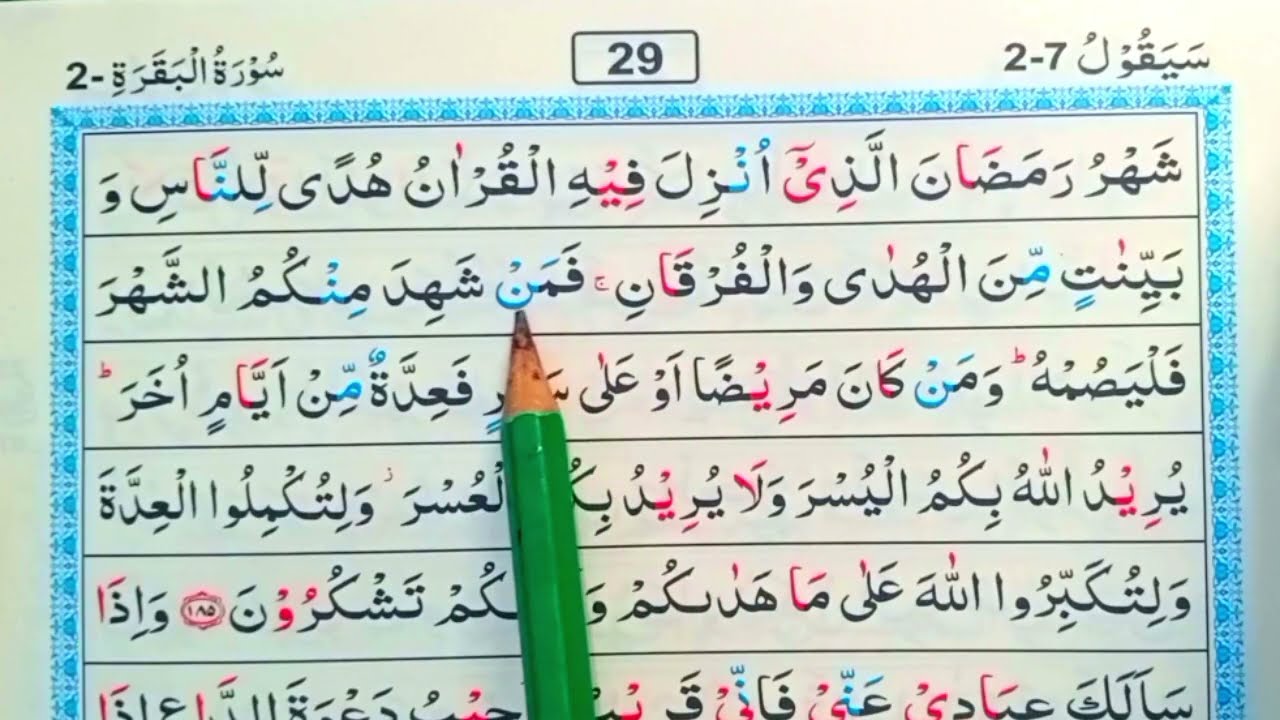 سَيَقُوْلُ 2-7
29
سُوْرَةُ الْبَقَرَةِ -2
شَهْرُ رَمَضَانَ الَّذِيْۤ اُنْزِلَ فِيْهِ الْقُرْاٰنُ هُدًى لِّلنَّاسِ وَ
بَيِّنٰتٍ مِّنَ الْهُدٰى وَالْفُرْقَانِ ۚ فَمَنْ شَهِدَ مِنْكُمُ الشَّهْرَ
فَلْيَصُمْهُ ؕ وَمَنْ كَانَ مَرِيْضًا اَوْ عَلٰى فَعِدَّةٌ مِّنْ اَيَّامٍ اُخَرَ ؕ
يُرِيْدُ اللّٰهُ بِكُمُ الْيُسْرَ وَلَا يُرِيْدُ الْعُسْرَ ۡ وَلِتُكْمِلُوا الْعِدَّةَ
وَلِتُكَبِّرُوا اللّٰهَ عَلٰى مَا هَدٰىكُمْ تَشْكُرُوْنَ ۝۱۸۵ وَاِذَا
سَاَلَكَ عِبَادِيْ عَنِّيْ فَاِنِّيْ دَعْوَةَ الدَّاعِ اِذَا